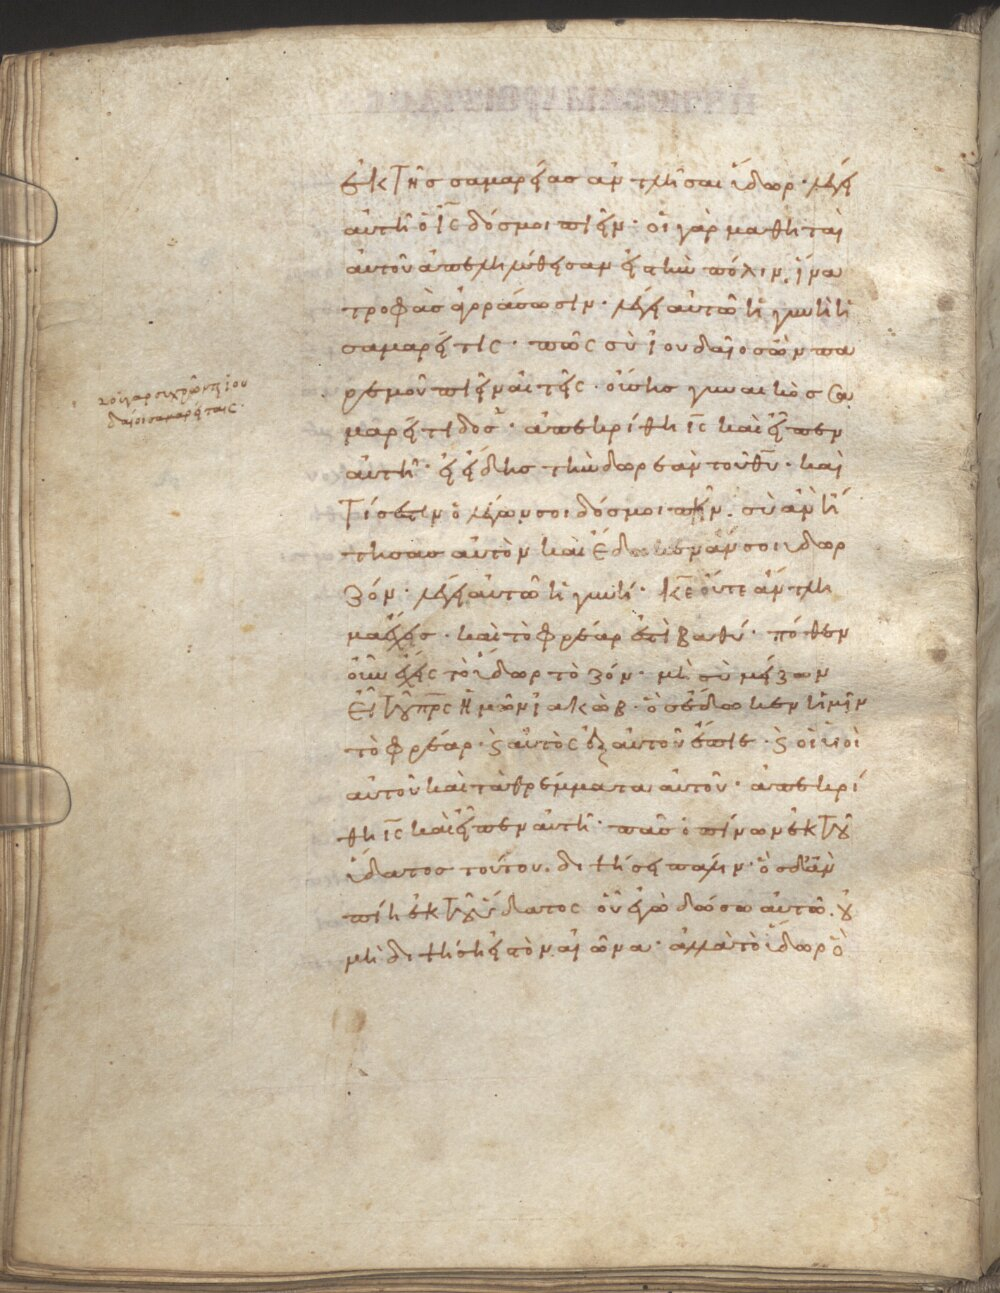 ἐκ τῆς σαμαρείας ἀντλῆσαι ὕδωρ· λέγει
αὐτῆ ὁ ἰς δόσμοι πιεῖν· οἱ γὰρ μαθηταὶ
αὐτοῦ ἀπεληλύθεισαν εἰς τὴν πόλιν, ἵνα
τροφὰς ἀγοράσωσιν· λέγει αὐτῶ ἡ γυνὴ ἡ
σαμαρεῖτις· πῶς σὺ ἰουδαῖος ὢν πα
ρ ἐμοῦ πιεῖν αἰτεῖς· οὔσης γυναικὸς σα
μαρείτιδος· ἀπεκρίθη ις καὶ εἶπεν
αὐτῆ· εἰ ἤδεις τὴν δωρεὰν τοῦ θυ· καὶ
τίς ἐστιν ὁ λέγων σοι δόσμοι πιεῖν. σὺ ἂν ἤ
τησας αὐτὸν καὶ ἔδωκεν ἄν σοι ὕδωρ
ζόν· λέγει αὐτῶ ἡ γυνή· κε οὔτε ἄντλη
μα ἔχεις· καὶ τὸ φρέαρ ἐστὶ βαθύ· πόθεν
οὖν ἔχεις τὸ ὕδωρ τὸ ζόν· μὴ σὺ μείζων
εἶ τοῦ πρς ἡμῶν ἰακὼβ· ὃς ἔδωκεν ἡμῖν
τὸ φρέαρ· ϗ αὐτὸς ἐξ αὐτοῦ ἔπιε· ϗ οἱ υἱοὶ
αὐτοῦ καὶ τὰ θρέμματα αὐτοῦ· ἀπεκρί
θη ις καὶ εἶπεν αὐτῆ· πᾶς ὁ πίνων ἐκ τοῦ
ὕδατος τούτου. διψήσει πάλιν· ὃς δ' ἂν
πίη ἐκ τοῦ ὕδατος οὗ ἐγὼ δώσω αὐτῶ. οὐ
μὴ διψήση εἰς τὸν αἰῶνα· ἀλλὰ τὸ ὕδωρ ὃ
οὐ γὰρ συγχρῶνται ἰου
δαῖοι σαμαρείταις·